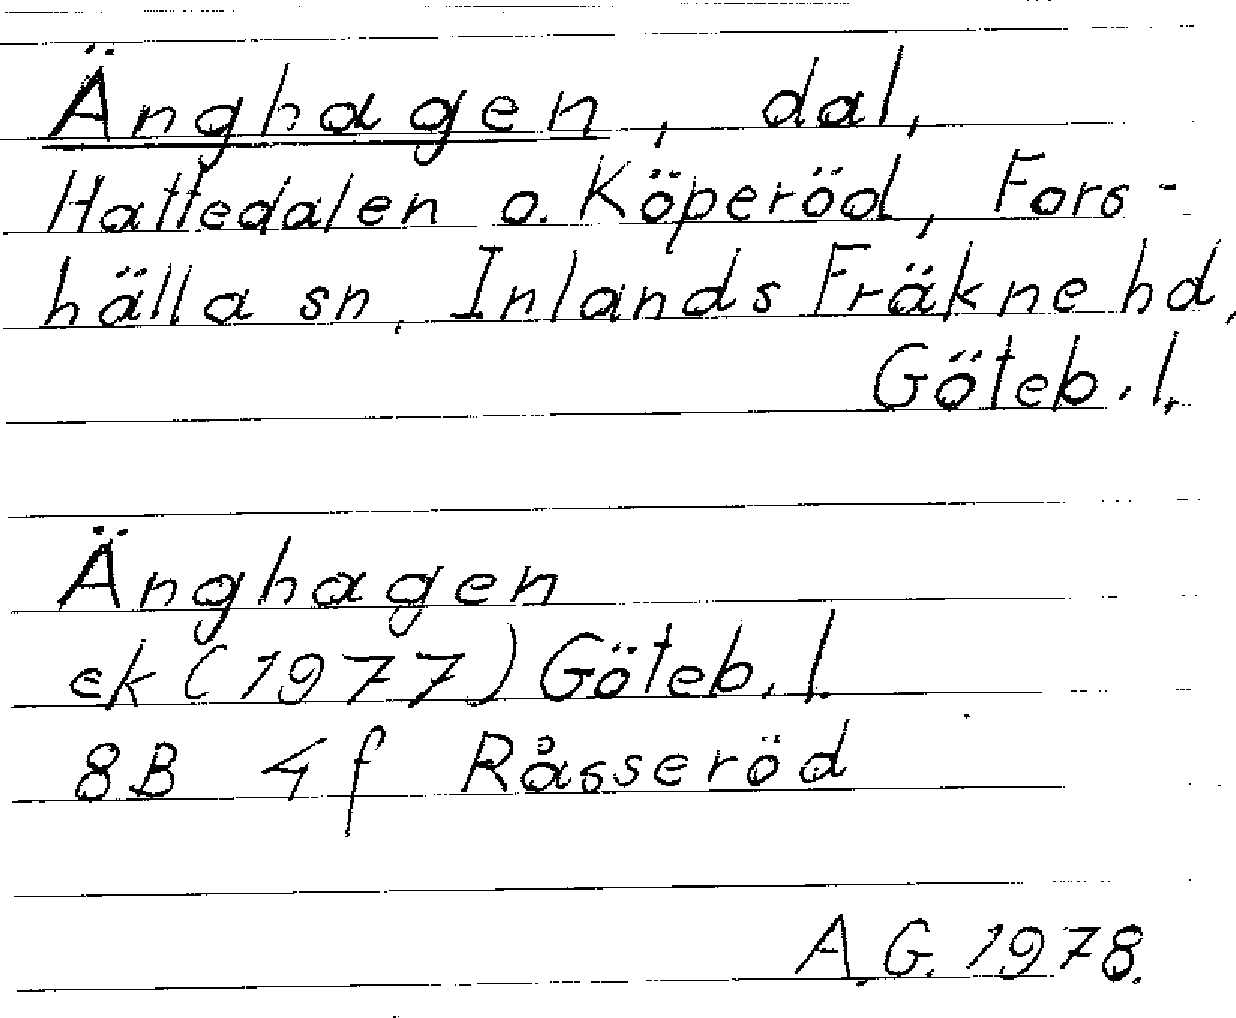 Änghagen, dal,
Hattedalen o. Köperöd, Fors-
hälla sn, Inlands Fräkne hd,
Göteb. l.
Änghagen
ek (1977) Göteb. l.
8B 4f Råsseröd
A.G. 1978.